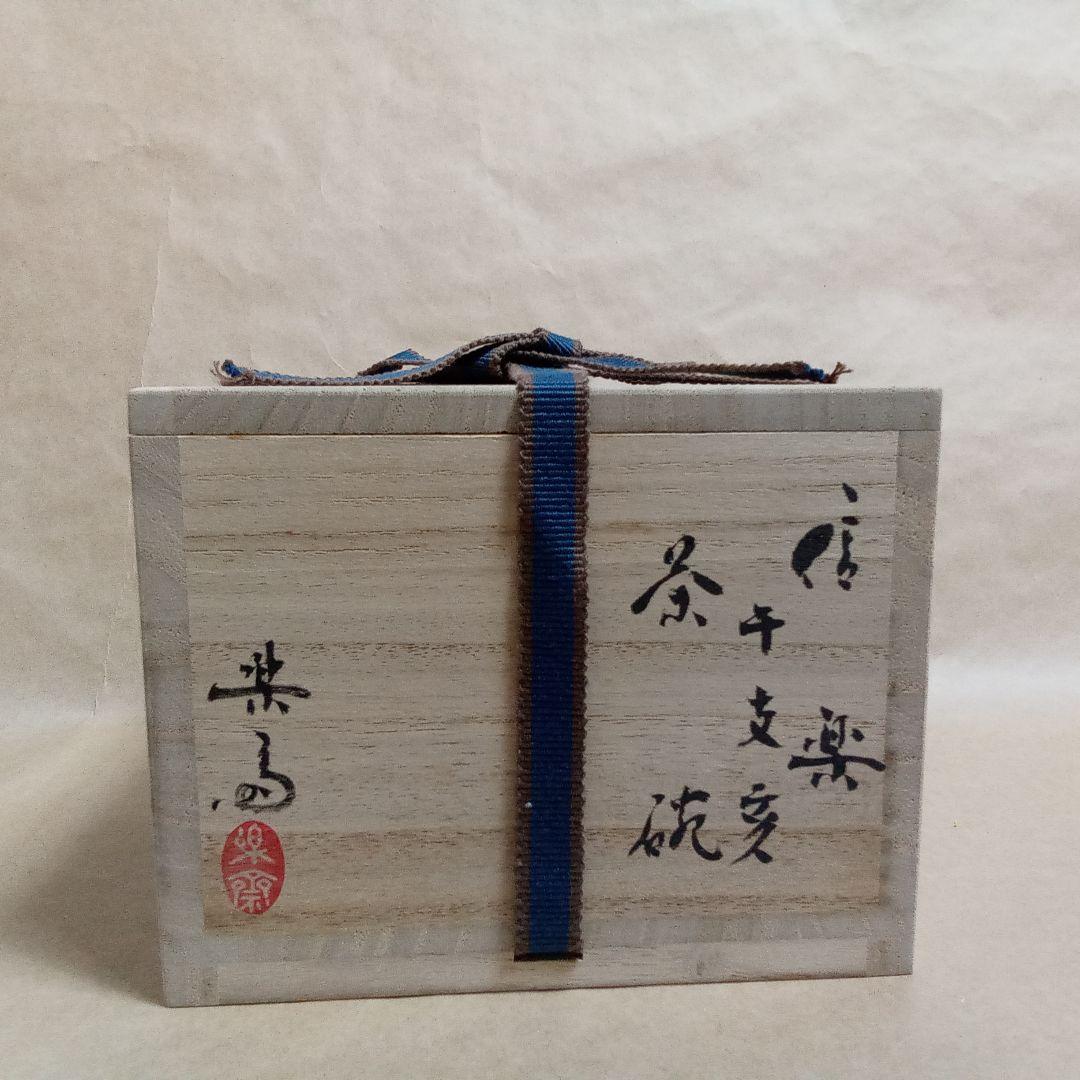 信楽
干支亥
茶碗
楽斎
楽斎